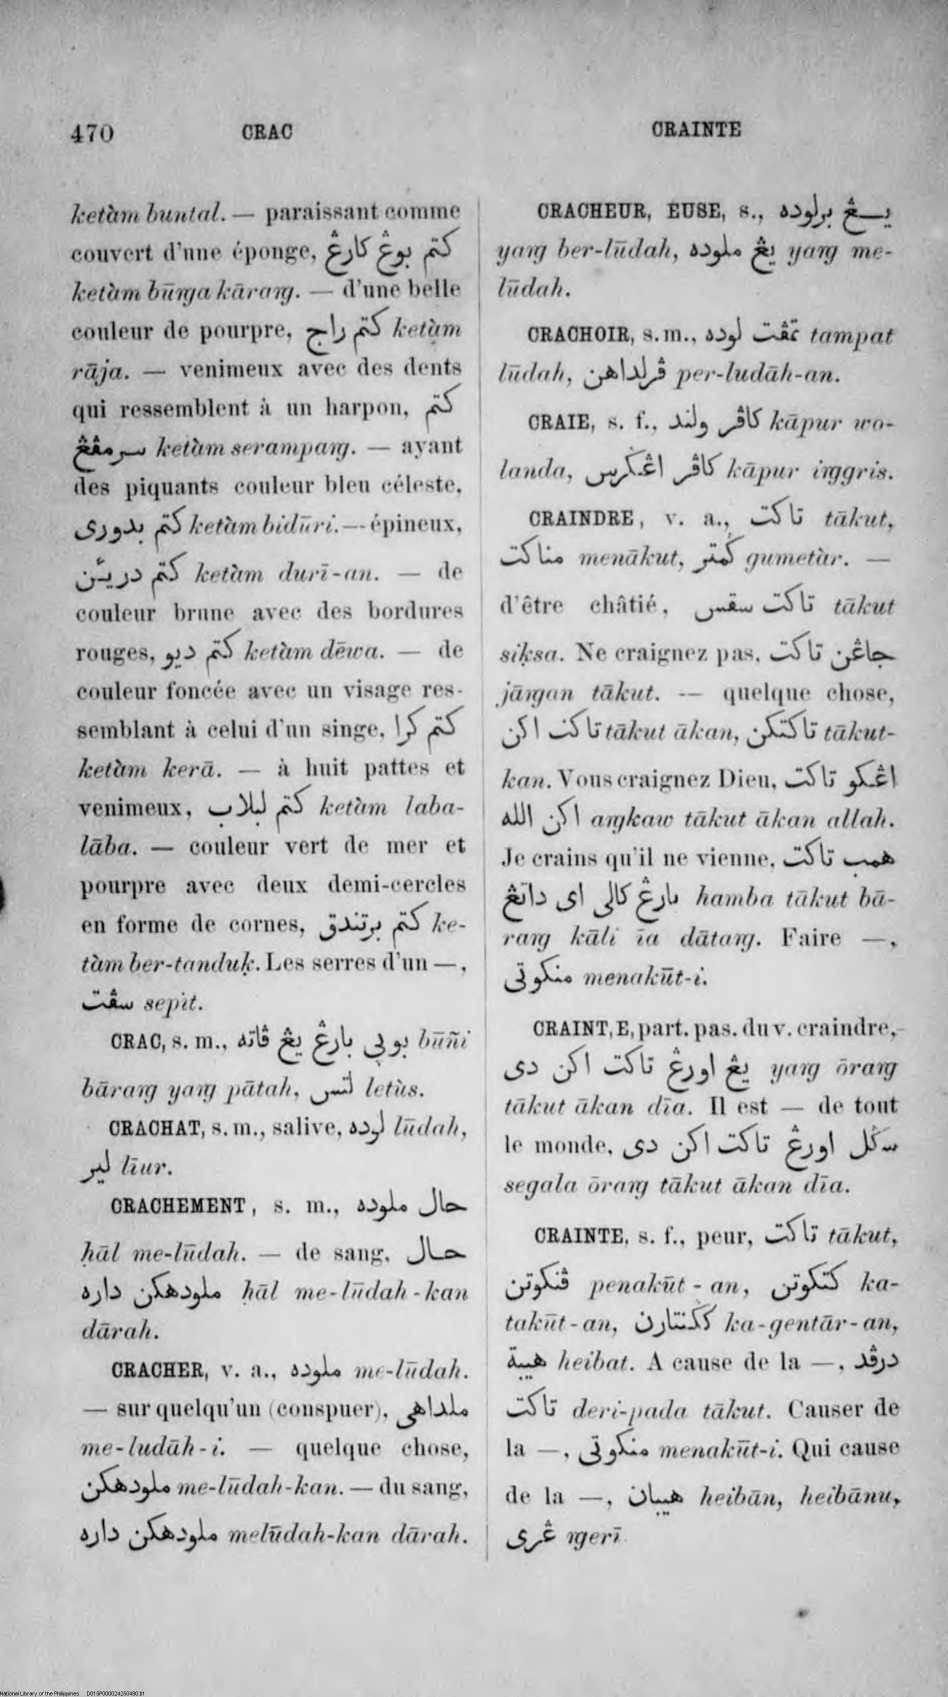 470 CRAC CRAINTE
ketàm buntal. — paraissant comme
couvert d'une éponge, كتم بوڠ كارڠ
ketàm būṅga kāraṅg. — d'une belle
couleur de pourpre, كتم راج ketàm
rāja. — venimeux avec des dents
qui ressemblent à un harpon, كتم
سرمڤڠ ketàm serampaṅg. — ayant
des piquants couleur bleu céleste,
كتم بدورى ketàm bidūri. — épineux,
كتم دريئن ketàm durī-an. — de
couleur brune avec des bordures
rouges, كتم ديو ketàm dēwa. — de
couleur foncée avec un visage res-
semblant à celui d'un singe, كتم كرا
ketàm kerā. — à huit pattes et
venimeux, كتم لبلاب ketàm laba-
lāba. — couleur vert de mer et
pourpre avec deux demi-cercles
en forme de cornes, كتم برتندق ke-
tàm ber-tanduḳ. Les serres d'un —,
سڤت sepìt.
CRAC, s. m., بوڽي بارڠ يڠ ڤاته būñi
bāraṅg yaṅg pātah, لتس letùs.
CRACHAT, s. m., salive, لوده lūdah,
لير līur.
CRACHEMENT, s. m., حال ملوده
ḥāl me-lūdah. — de sang, حال
ملودهكن داره ḥāl me-lūdah-kan
dārah.
CRACHER, v. a., ملوده me-lūdah.
— sur quelqu'un (conspuer), ملداهى
me-ludāh-i. — quelque chose,
ملودهكن me-lūdah-kan. — du sang,
ملودهكن داره melūdah-kan dārah.
CRACHEUR, EUSE, s., يڠ برلوده
yaṅg ber-lūdah, يڠ ملوده yaṅg me-
lūdah.
CRACHOIR, s. m., تمڤت لوده tampat
lūdah, ڤرلداهن per-ludāh-an.
CRAIE, s. f., كاڤر ولند kāpur wo-
landa, كاڤر اڠݢريس kāpur iṅggris.
CRAINDRE, v. a., تاكت tākut,
مناكت menākut, ݢمتر gumetàr. —
d'être châtié, تاكت سقس tākut
siḳsa. Ne craignez pas, جاڠن تاكت
jāṅgan tākut. — quelque chose,
تاكت اكن tākut ākan, تاكتكن tākut-
kan. Vous craignez Dieu, اڠكو تاكت
اكن الله aṅgkaw tākut ākan allah.
Je crains qu'il ne vienne, همب تاكت
بارڠ كالى اى داتڠ hamba tākut bā-
raṅg kāli īa dātaṅg. Faire —,
منكوتى menakūt-i.
CRAINT, E, part. pas. du v. craindre,
يڠ اورڠ تاكت اكن دى yaṅg ōraṅg
tākut ākan dīa. Il est — de tout
le monde, سݢل اورڠ تاكت اكن دى
segala ōraṅg tākut ākan dīa.
CRAINTE, s. f., peur, تاكت tākut,
ڤنكوتن penakūt-an, كتكوتن ka-
takūt-an, كݢنتارن ka-gentār-an,
هيبة heibat. A cause de la —, درڤد
تاكت deri-pada tākut. Causer de
la —, منكوتى menakūt-i. Qui cause
de la —, هيبان heibān, heibānu,
ڠرى ṅgerī.
National Library of the Philippines